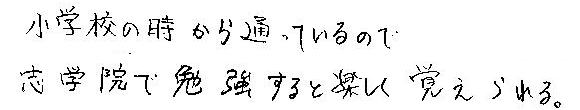 小学校の時から通っているので
志学院で勉強すると楽しく覚えられる。